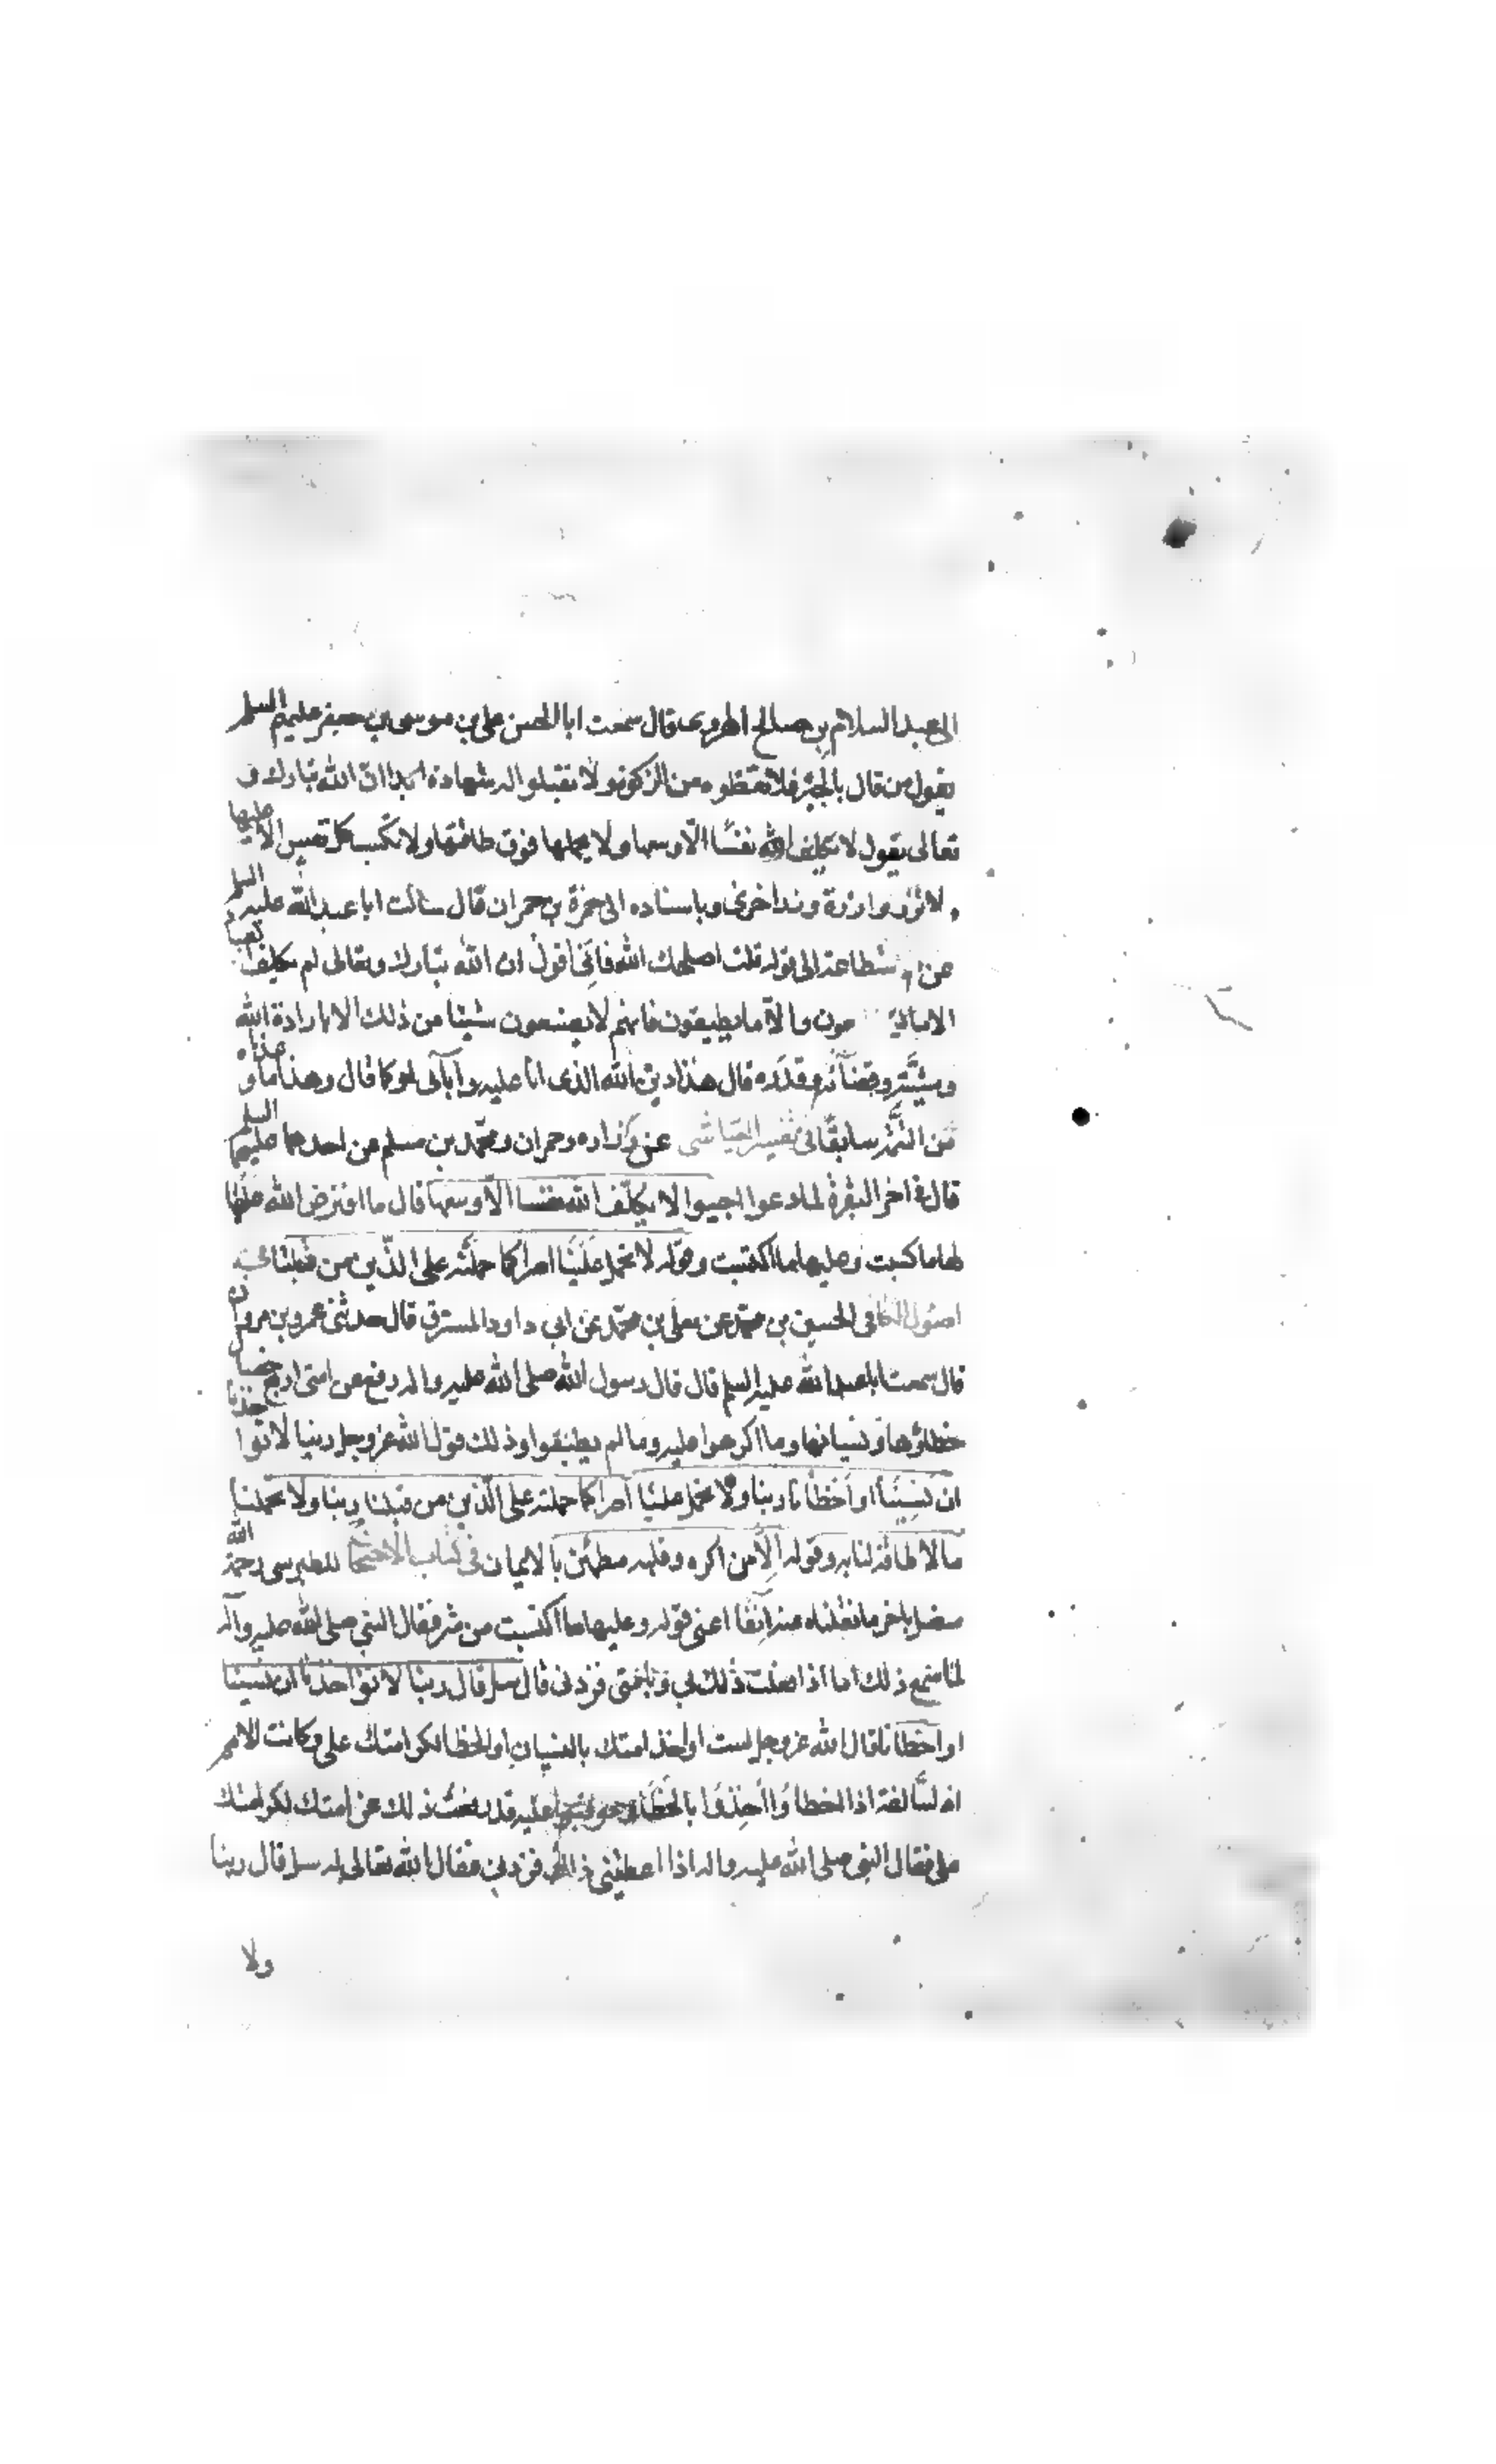 الى عبد السلام بن صالح الهروى قال سمعت ابا الحسن على بن موسى بن جعفر عليهم السلم
يقول من قال بالجبر فلا تعطوه من الزكوة ولا تقبلوا له شهادة ابدا ان الله تبارك و
تعالى يقول لا يكلف الله نفسًا الّا وسعها ولا يحملها فوق طاقتها ولا تكسب كل نفس الا عليها
ولا تزر وازرة وزر اخرى وباسناده الى حمزة بن حمران قال سالت ابا عبد الله عليه السلم
عن الاستطاعة الى قوله قلت اصلحك الله فانّى اقول ان الله تبارك وتعالى لم يكلف العباد
الا ما يستطيعون والّا ما يطيقون فانهم لا يصنعون شيئا من ذلك الا بارادة الله
ومشيّته وقضآئه وقدره قال هذا دين الله الذى انا عليه وآبآئى او كما قال وهذا ماو عدناه
من التتمّة سابقًا فى تفسير العيّاشى عن زراره وحمران ومحمّد بن مسلم عن احدهما عليهما السلم
قال فى اخر البقرة لما دعوا اجيبوا لا يكلّف الله نفسا الّا وسعها قال ما افترض الله عليها
لها ما كسبت وعليها ما اكتسبت وقوله لا تحمل عَلَيْنَا اصرا كما حملتَه على الّذين من قبلنا فى
اصول الكافى الحسين بن محمّد عن معلى بن محمّد عن ابى داود المسترق قال حدثنى عمرو بن مروان
قال سمعت ابا عبد الله عليه السلم قال قال رسول الله صلى الله عليه واله رفع عن امتى اربع خصال
خطاؤها ونسيانها وما اكرهوا عليه وما لم يطيقوا وذلك قول الله عز وجل ربنا لا تؤاخذنا
ان نَسِينَا او اَخْطأنا ربنا ولا تحمل علينا اصرا كما حملته على الّذين من قبلنا ربنا ولا تحملنا
ما لا طاقة لنا به وقوله الّا من اكره وقلبه مطمئن بالايمان فى كتاب الاحتجاج للطبرسى رحمه الله
متصل باخر ما نقلناه عنه آنفًا اعنى قوله وعليها ما اكتسبت من شر فقال النبى صلى الله عليه وآله
لما سمع ذلك اما اذا فعلت ذلك بى وبامّتى فزدنى قال سل قال ربنا لا تؤاخذنا ان نسينا
او اخطانا قال الله عز وجل لست اواخذ امتك بالنسيان او الخطا لكرامتك على وكانت الامم
علىّ فقال النبى صلى الله عليه واله اذا اعطيتنى ذلك فزدنى فقال الله تعالى له سل قال ربنا
ولا